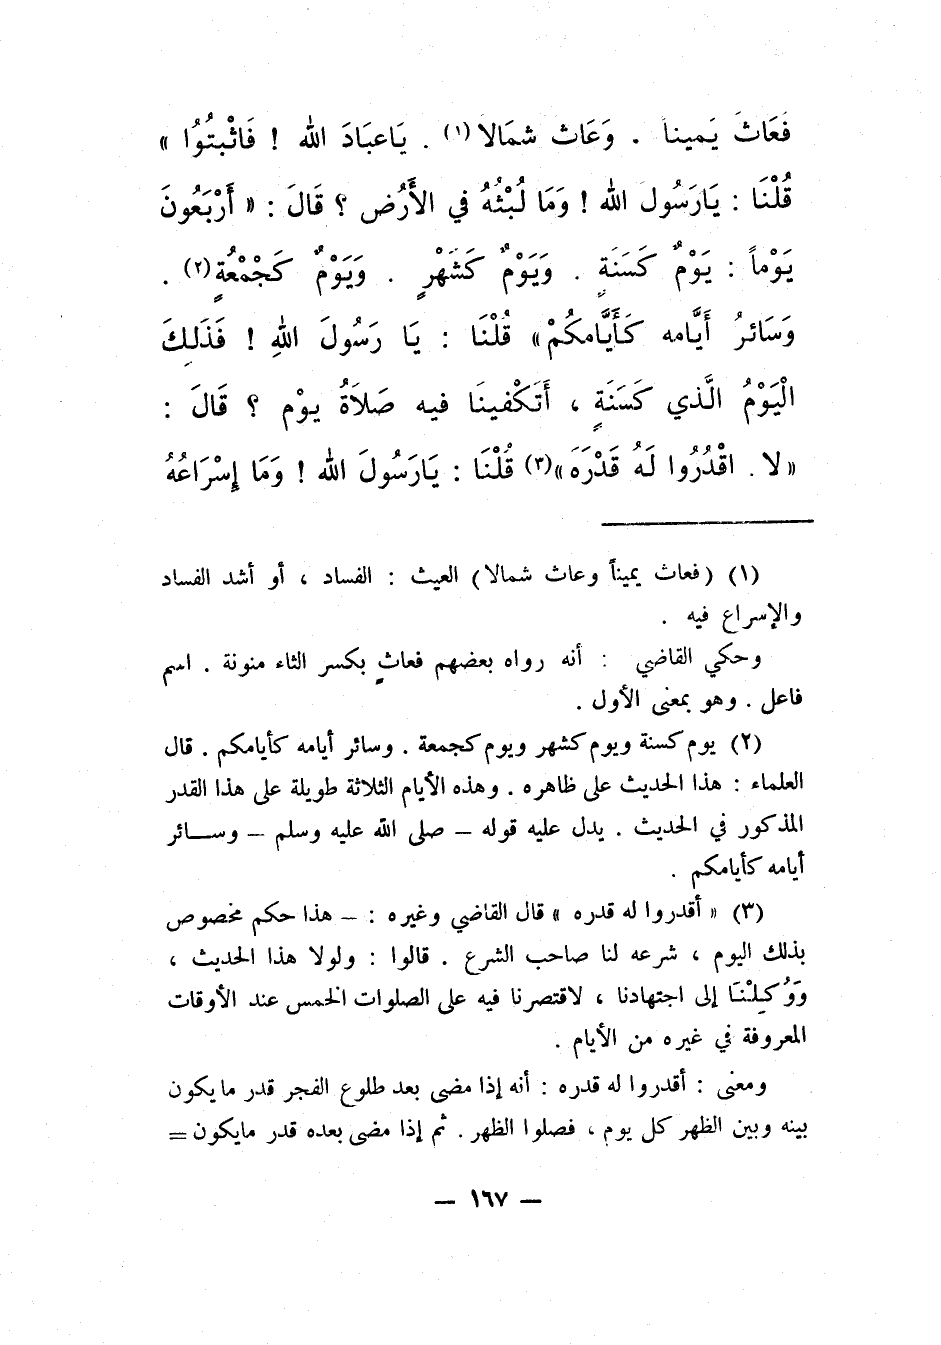 فَعَاثَ يَمينا . وَعَاث شمَالا(١) . يَاعبَادَ الله ! فَاثْبتُوُا »
قُلْنَا : يَارَسُول الله ! وَمَا لُبْثهُ في الأَرْض ؟ قَالَ : « أَرْبَعُونَ
يَوْماً : يَوْمٌ كَسَنَةٍ . وَيَوْمٌ كَشَهْرٍ . وَيَوْمٌ كَجُمْعَةٍ(٢) .
وَسَائرُ أَيَّامه كَأَيَّامكُمْ» قُلْنَا : يَا رَسُولَ اللهِ ! فَذَلِكَ
الْيَوْمُ الَّذي كَسَنَةٍ ، أَتَكْفينَا فيه صَلاَةُ يوْم ؟ قَالَ :
« لا . اقْدُرُوا لَهُ قَدْرَهَ»(٣) قُلْنَا : يَارَسُولَ الله ! وَمَا إِسْرَاعُهُ
(١) (فعاث يميناً وعاث شمالا) العيث : الفساد ، أو أشد الفساد
والإسراع فيه .
وحكي القاضي : أنه رواه بعضهم فعاثٍ بكسر الثاء منونة . اسم
فاعل . وهو بمعنى الأول .
(٢) يوم كسنة ويوم كشهر ويوم كجمعة . وسائر أيامه كأيامكم . قال
العلماء : هذا الحديث على ظاهره . وهذه الأيام الثلاثة طويلة على هذا القدر
المذكور في الحديث . يدل عليه قوله – صلى الله عليه وسلم – وسائر
أيامه كأيامكم .
(٣) « أقدروا له قدره » قال القاضي وغيره : – هذا حكم مخصوص
بذلك اليوم ، شرعه لنا صاحب الشرع . قالوا : ولولا هذا الحديث ،
وَوُكِلْنَا إلى اجتهادنا ، لاقتصرنا فيه على الصلوات الخمس عند الأوقات
المعروفة في غيره من الأيام .
ومعنى : أقدروا له قدره : أنه إذا مضى بعد طلوع الفجر قدر ما يكون
بينه وبين الظهر كل يوم ، فصلوا الظهر . ثم إذا مضى بعده قدر مايكون =
– ١٦٧ –